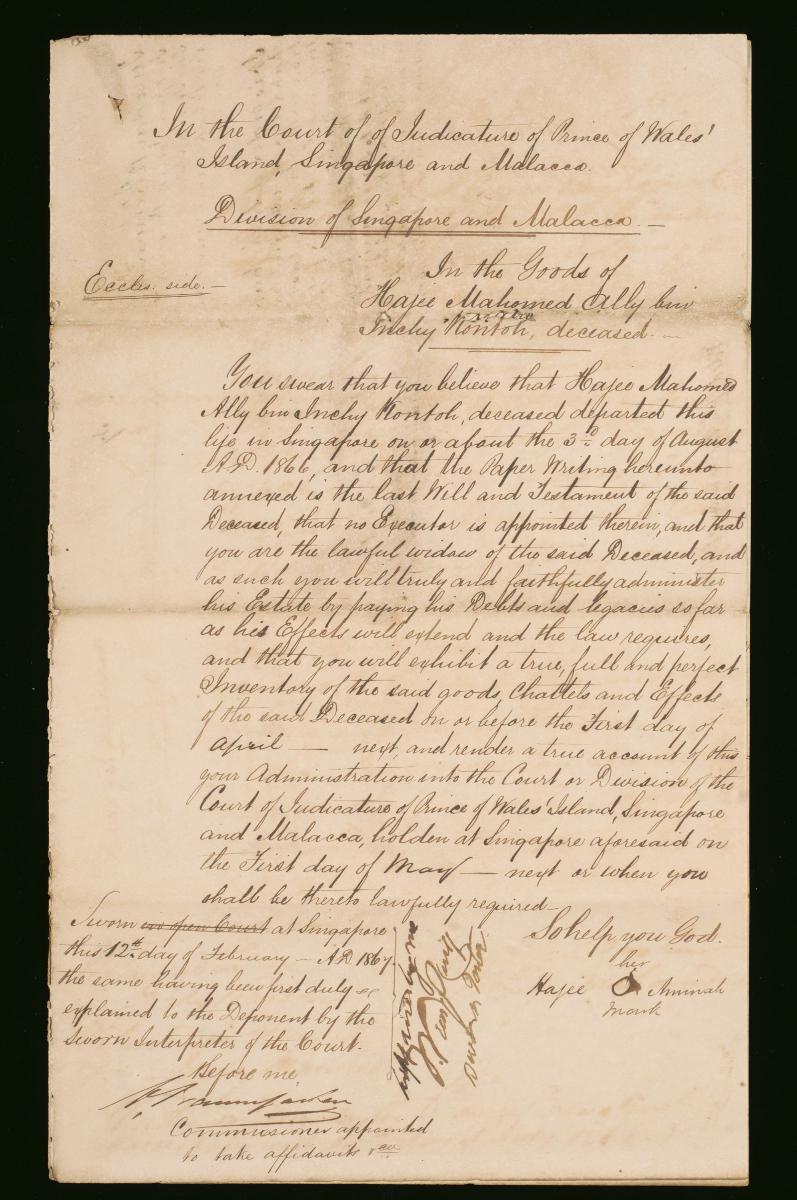 In the Court of of Judicature of Prince of Wales'
Island, Singapore and Malacca.
Division of Singapore and Malacca.—
Eccles. side.—
In the Goods of
Hajee Mahomed Ally bin
Inchy Kontoh, deceased.—
You swear that you believe that Hajee Mahomed
Ally bin Inchy Kontoh, deceased departed this
life in Singapore on or about the 3rd day of August
A.D. 1866, and that the Paper Writing hereunto
annexed is the last Will and Testament of the said
Deceased, that no Executor is appointed therein, and that
you are the lawful widow of the said Deceased, and
as such you will truly and faithfully administer
his Estate by paying his Debts and legacies so far
as his Effects will extend and the law requires,
and that you will exhibit a true, full and perfect
Inventory of the said goods, Chattels and Effects
of the said Deceased on or before the First day of
April — next, and render a true account of this
your Administration into the Court or Division of the
Court of Judicature of Prince of Wales' Island, Singapore
and Malacca, holden at Singapore aforesaid on
the First day of May — next or when you
shall be thereto lawfully required—
So help you God.
her
Hajee O Aminah
mark
Sworn in open Court at Singapore
this 12th day of February — A.D. 1867
the same having been first duly
explained to the Deponent by the
Sworn Interpreter of the Court.
Before me,
Commissioner appointed
to take affidavits &ca
by me